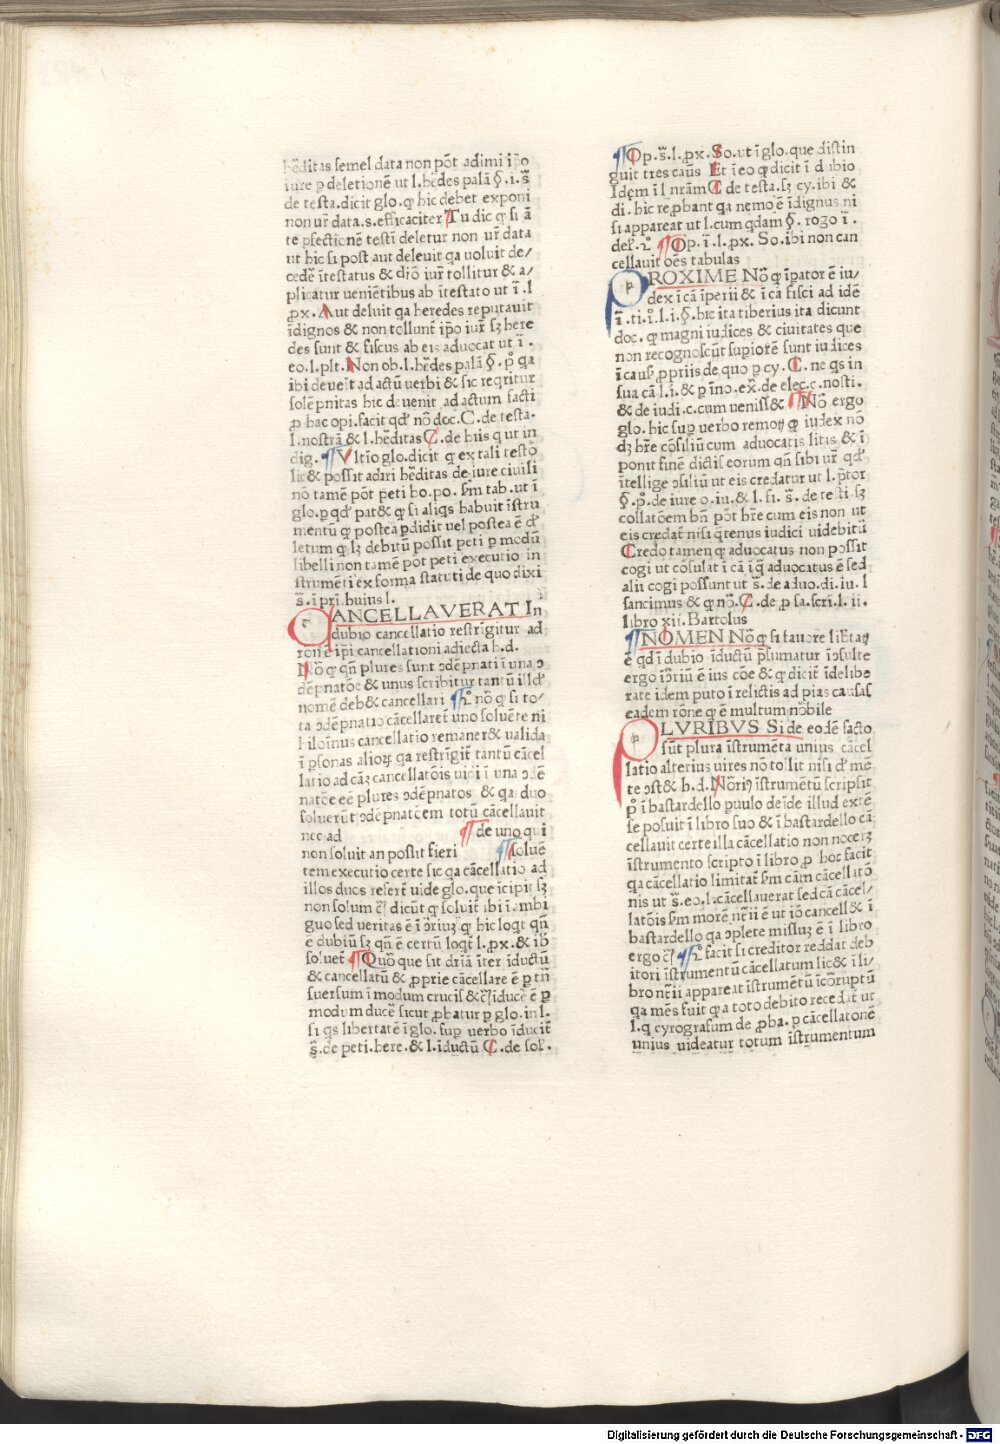 hẽditas semel data non põt adimi ip̃o
iure p deletionẽ ut l.hẽdes palã §.i.s̃
de testa.dicit glo.q hic debet exponi
non ur̃ data.s.efficaciter Tu dic q si ã
te pfectionẽ testĩ deletur non ur̃ data
ut hic si post aut deleuit qa uoluit de/
cedẽ ĩtestatus & dr̃o iur̃ tollitur & a/
plicatur ueniẽtibus ab ĩtestato ut ĩ.l
px. Aut deluit qa heredes reputauit
ĩdignos & non tollunt̃ ip̃o iur̃ sꝫ here
des sunt & fiscus ab eis aduocat ut ĩ.
eo.l.plt.Non ob.l.hẽdes palã §.p̊ qa
ibi deueit̃ ad actũ uerbi & sic reqritur
solẽpnitas hic deuenit ad actum facti
p hac opi.facit qd' nõ doc.C.de testa.
l.nostrã & l.hẽditas C.de hiis q ut in
dig. ¶Vltĩo glo.dicit q ex tali testõ
lic& possit adiri hẽditas de iure ciuili
nõ tamẽ põt peti bo.po. sm̃ tab.ut ĩ
glo.p qd' pat& q si aliqs habuit ĩstru
mentũ q postea pdidit uel postea ẽ d'
letum q lꝫ debitũ possit peti p modũ
libelli non tamẽ põt peti executio in
strumẽti ex forma statuti de quo dixi
s̃.ĩ pri.huius l.
CANCELLAVERAT In
dubio cancellatio restrĩgitur ad
ronẽ ip̃i cancellationi adiecta h.d.
Nõ q qñ plures sunt ↄdẽpnati ĩ una ↄ
dẽpnatõe & unus scribitur tantũ ill'd'
nomẽ deb& cancellari ¶Ir̊ nõ q si to/
ta ↄdẽpnatio cãcellaret̃ uno soluẽte ni
hilominus cancellatio remaner& ualida
ĩ psonas alioꝝ qa restrĩgit̃ tantũ cãcel
latio ad cãꝫ cancellatõis uidi ĩ una ↄdẽ
natõe eẽ plures ↄdẽpnatos & qa duo
soluerũt ↄdẽpnatcem totũ cãcellauit
nec ad ¶de uno qui
non soluit an possit fieri ¶soluẽ
tem executio certe sic qa cãcellatio ad
illos duos refert̃ uide glo.que ĩcipit sꝫ
non solum &̃ dicũt q soluit̃ ibi ĩ ambi
guo sed ueritas ẽ ĩ ↄ̃riuꝫ q hic loqt̃ qñ
ẽ dubiũ sꝫ qñ ẽ certũ loqt̃ l.px.& ibi
soluet̃ ¶Quõ que sit dr̃ia ĩter ĩductũ
& cancellatũ & pprie cãcellare ẽ p trñ
suersum ĩ modum crucis & &̃ ĩducẽ ẽ p
modum ducẽ sicut pbatur p glo.in l.
si qs libertatẽ ĩ glo. sup uerbo ĩducit̃
s̃.de peti.here.& l.ĩductũ C.de sol'.
¶Op.s̃.l.px.So.ut ĩ glo.que distin
guit tres caus̃ Et ĩ eo q dicit ĩ dubio
Idem ĩ l nr̃am C de testa.sꝫ cy.ibi &
di.hic repbant qa nemo ẽ ĩdignus ni
si appareat ut l.cum qdam §.rogo ĩ.
de r̊. ¶Op.ĩ.l.px. So.ibi non can
cellauit oẽs tabulas
PROXIME Nõ q ĩpator ẽ iu/
dex ĩ cã ĩperii & ĩ cã fisci ad idẽ
ĩ.ti.ĩ.l.i.§.hic ita tiberius ita dicunt
doc. q magni iudices & ciuitates que
non recognoscũt supiorẽ sunt iudices
ĩ causis ppriis de quo p cy. C.ne qs in
sua cã l.i.& p ĩno.ex̃.de elec.c.nosti.
& de iudi.c.cum uenisš& ¶Nõ ergo
glo.hic sup uerbo remoꝝ q iudex nõ
dꝫ hr̃e cõsiliũ cum aduocatis litis & ĩ
ponit finẽ dictis eorum qñ sibi ur̃ qd'
ĩtellige ↄsiliũ ut eis credatur ut l.pr̃tor
§.p̊.de iure o.iu.& l.fi. s̃.de testi sꝫ
collatõem bñ põt hr̃e cum eis non ut
eis credat̃ nisi qtenus iudici uidebitũ
Credo tamen q aduocatus non possit
cogi ut cõsulat ĩ cã ĩ q̃ aduocatus ẽ sed
alii cogi possunt ut s̃.de aduo.di.iu.l
sancimus & q nõ.C.de p sa.scri.l.ii.
libro xii.Bartolus
¶NOMEN Nõ q si fauore lib̃tatꝫ
ẽ qd ĩ dubio ĩductũ p̃sumatur ĩↄsulte
ergo ĩↄ̃riũ ẽ ius cõe & q dicit̃ ĩdelibe
rate idem puto ĩ relictis ad pias causas
eadem rõne q ẽ multum nõbile
PLVRIBVS Si de eodẽ facto
sũt plura ĩstrumẽta unius cãcel
latio alterius uires nõ tollit nisi d' mẽ
te ↄst& h.d. Nõriꝰ ĩstrumẽtũ scripsit
p̊ ĩ bastardello puulo deĩde illud extẽ
se posuit ĩ libro suo & ĩ bastardello cã
cellauit certe illa cãcellatio non noceꝫ
ĩstrumento scripto ĩ libro p hoc facit
qa cãcellatio limitat̃ sm̃ cãm cãcellatõ
nis ut s̃.eo.l.cãcellauerat sed cã cãcel/
latõis sm̃ morẽ nr̃ii ẽ ut iõ cancell& ĩ
bastardello qa ↄplete missuꝫ ẽ ĩ libro
ergo &̃ ¶Ir̊ facit si creditor reddat deb
itori ĩstrumentũ cãcellatum lic& ĩ li/
bro nr̃ii appareat ĩstrumẽtũ ĩcorruptũ
qa mẽs fuit q a toto debito recedat̃ ut
l.q cyrografum de pba.p cãcellationẽ
unius uideatur totum ĩstrumentum
Digitalisierung gefördert durch die Deutsche Forschungsgemeinschaft - DFG